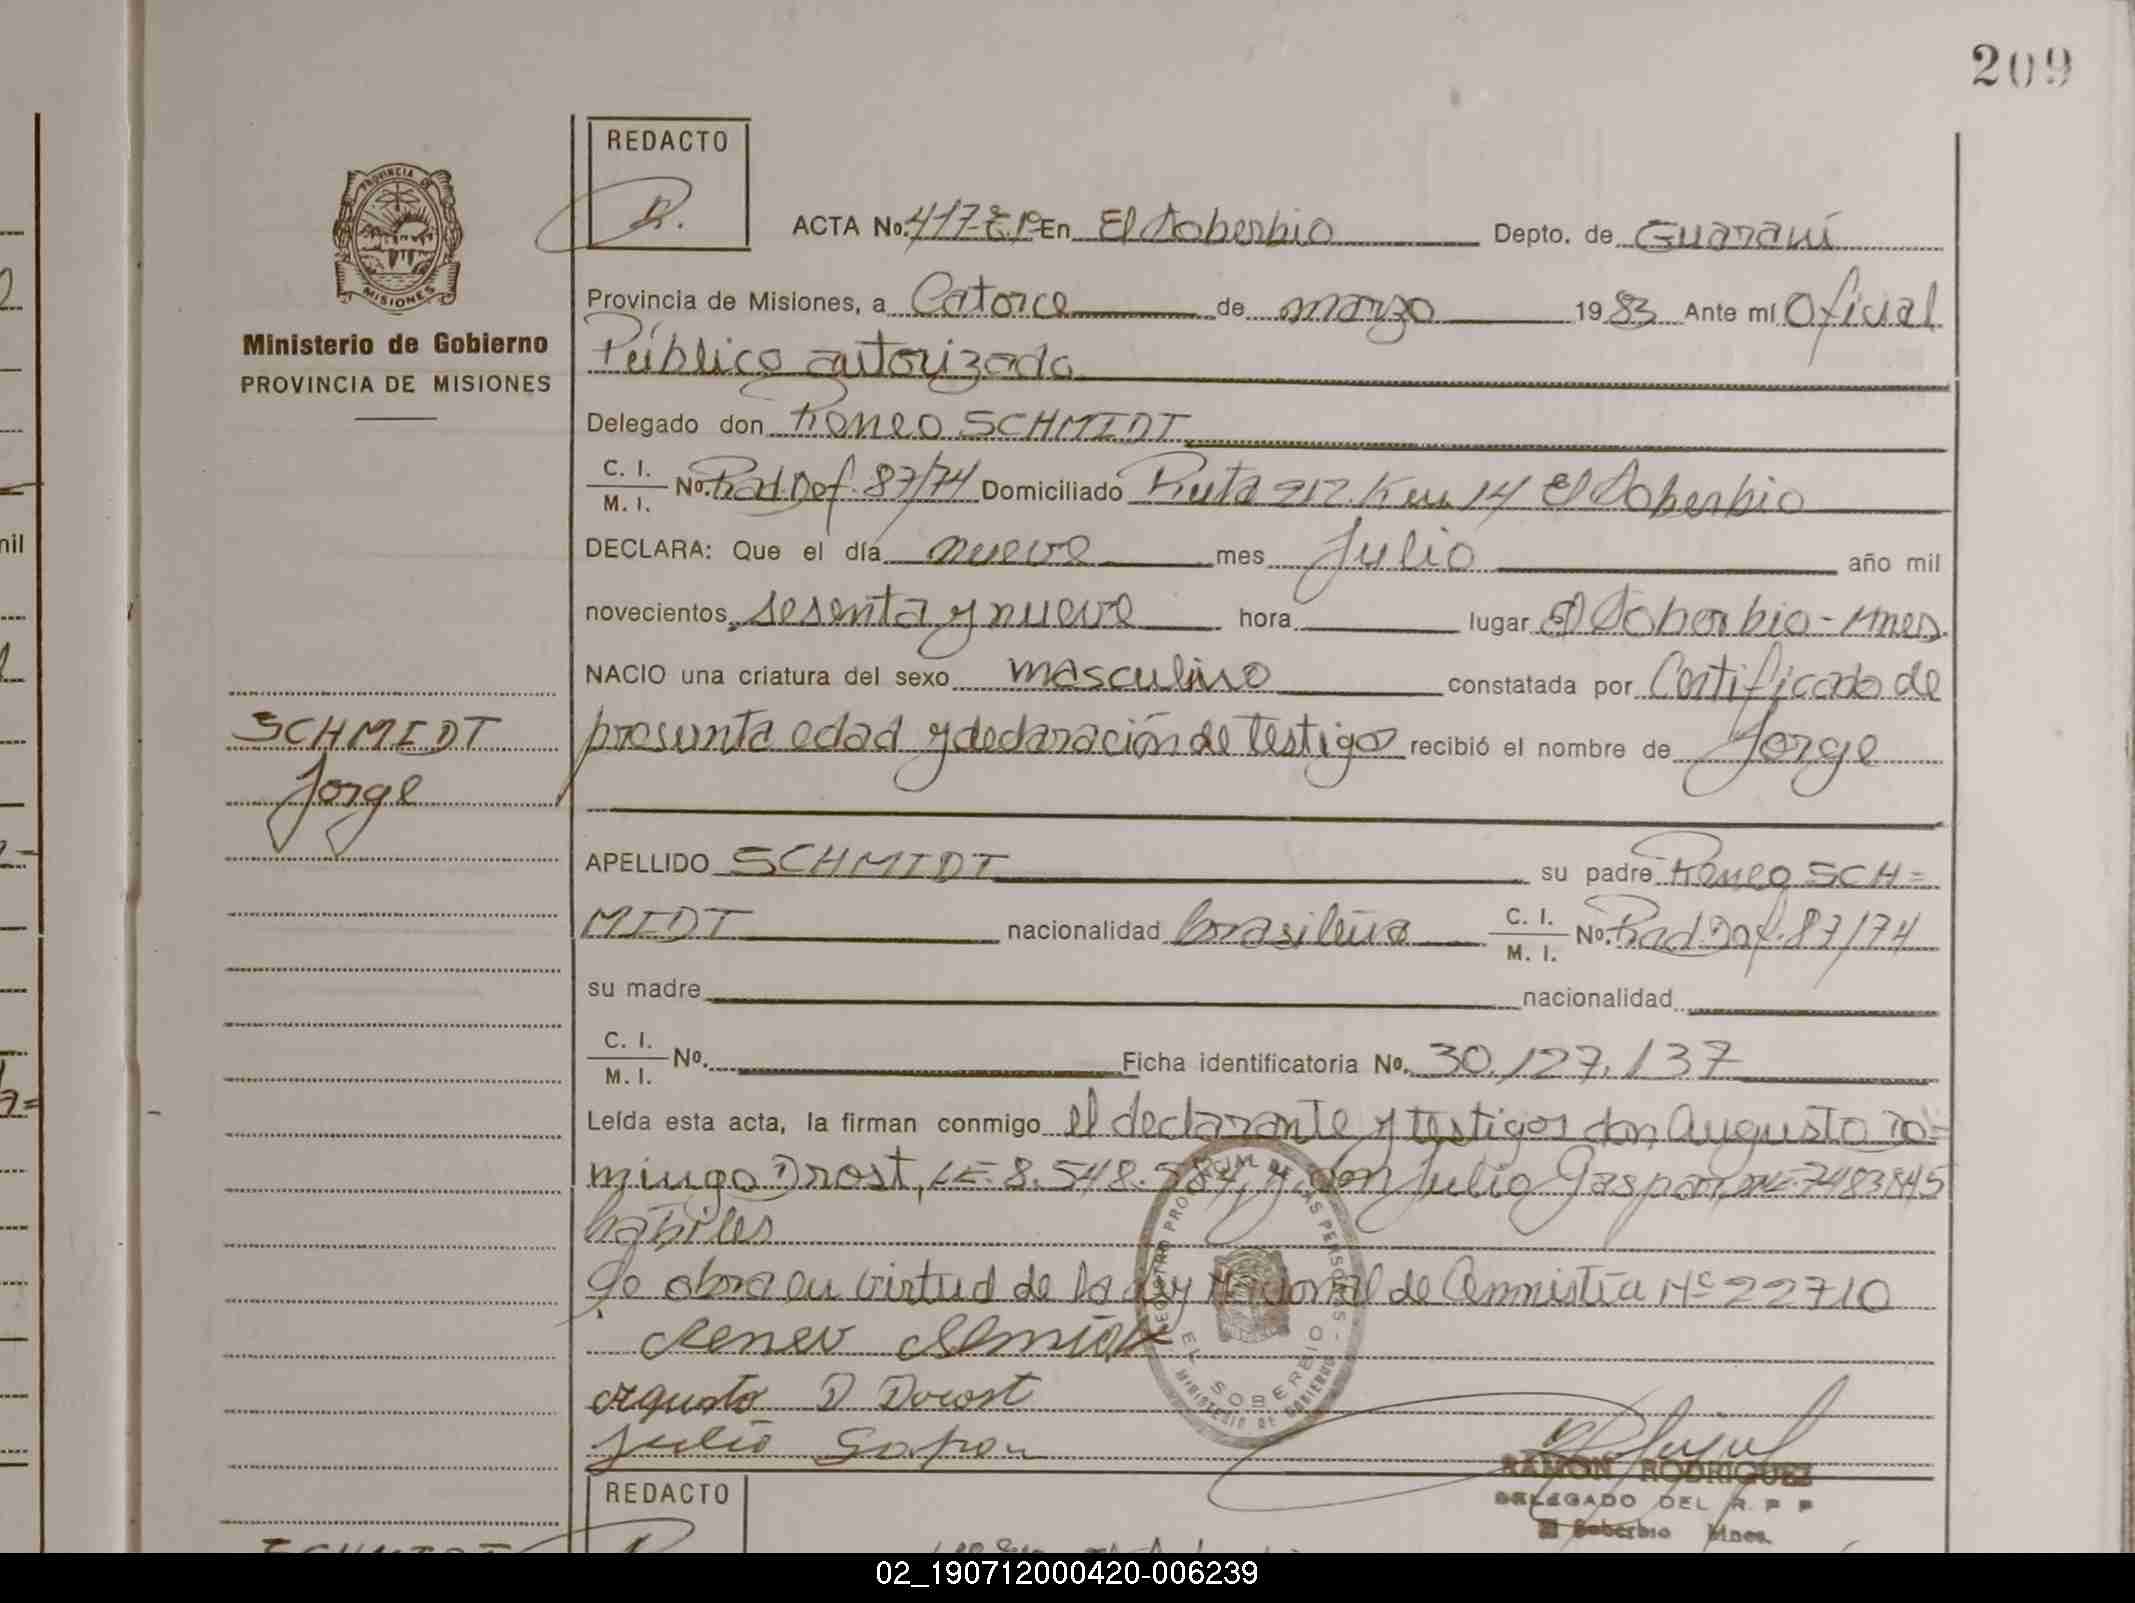 209
REDACTO
R.
ACTA No. 417-E.P En El Soberbio Depto. de Guaraní
PROVINCIA DE
MISIONES
Ministerio de Gobierno
PROVINCIA DE MISIONES
Provincia de Misiones, a Catorce de marzo 1983 Ante mí Oficial
Público autorizado
Delegado don Romeo SCHMIDT
C. I.
M. I. No. Rad. Def. 87/74 Domiciliado Ruta 212. Km 14 El Soberbio
DECLARA: Que el día nueve mes Julio año mil
novecientos sesenta y nueve hora lugar El Soberbio - Mnes.
NACIO una criatura del sexo masculino constatada por Certificado de
SCHMIDT
Jorge
presunta edad y declaración de testigos recibió el nombre de Jorge
APELLIDO SCHMIDT su padre Romeo SCH=
MIDT nacionalidad brasileña C. I.
M. I. No. Rad. Def. 87/74
su madre nacionalidad
C. I.
M. I. No. Ficha identificatoria No. 30.127.137
Leída esta acta, la firman conmigo el declarante y testigos don Augusto Do=
mingo Drost, LE: 8.548.584, y don Julio Gaspar,
hábiles
Se obra en virtud de la Ley Nacional de Amnistía Nº 22710
REGISTRO PROVINCIAL DE LAS PERSONAS
EL SOBERBIO
MINISTERIO DE GOBIERNO
Augusto D Drost
Julio Gaspar
RAMON RODRIGUEZ
DELEGADO DEL R. P P
El Soberbio Mnes.
REDACTO
02_190712000420-006239